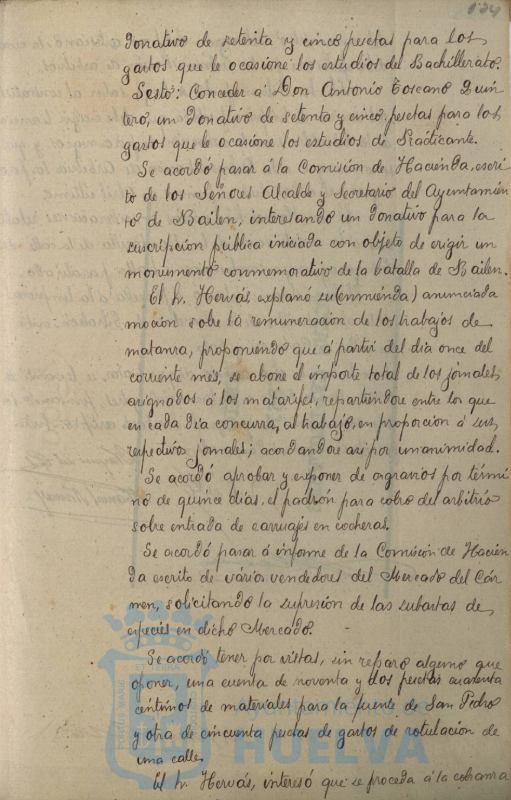 124
donativo de setenta y cinco pesetas para los
gastos que le ocasione los estudios del Bachillerato.
Sesto: Conceder á Don Antonio Toscano Quin-
tero, un donativo de setenta y cinco pesetas para los
gastos que le ocasione los estudios de Practicante.
Se acordó pasar á la Comisión de Hacienda, escri-
to de los Señores Alcalde y Secretario del Ayuntamien-
to de Bailen, interesando un donativo para la
suscripcion pública iniciada con objeto de erigir un
monumento conmemorativo de la batalla de Bailen.
El Sr. Hervás explanó su (enmienda) anunciada
moción sobre la remuneración de los trabajos de
matanza, proponiendo que á partir del día once del
corriente mes, se abone el importe total de los jornales
asignados á los matarifes, repartiendose entre los que
en cada día concurra, al trabajo, en proporción á sus
respectivos jornales; acordandose asi por unanimidad.
Se acordó aprobar y exponer de agravios por térmi-
no de quince días, el padrón para cobro del arbitrio
sobre entrada de carruajes en cocheras.
Se acordó pasar á informe de la Comisión de Hacien-
da escrito de vários vendedores del Mercado del Cár-
men, solicitando la supresión de las subastas de
especies en dicho Mercado.
Se acordó tener por vistas, sin reparo alguno que
oponer, una cuenta de noventa y dos pesetas cuarenta
centimos de materiales para la fuente de San Pedro
y otra de cincuenta pesetas de gastos de rotulacion de
una calle.
El Sr. Hervás, interesó que se proceda á la cobranza
HUELVA